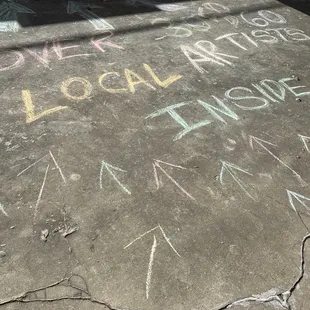 OVER 60
LOCAL ARTISTS
INSIDE